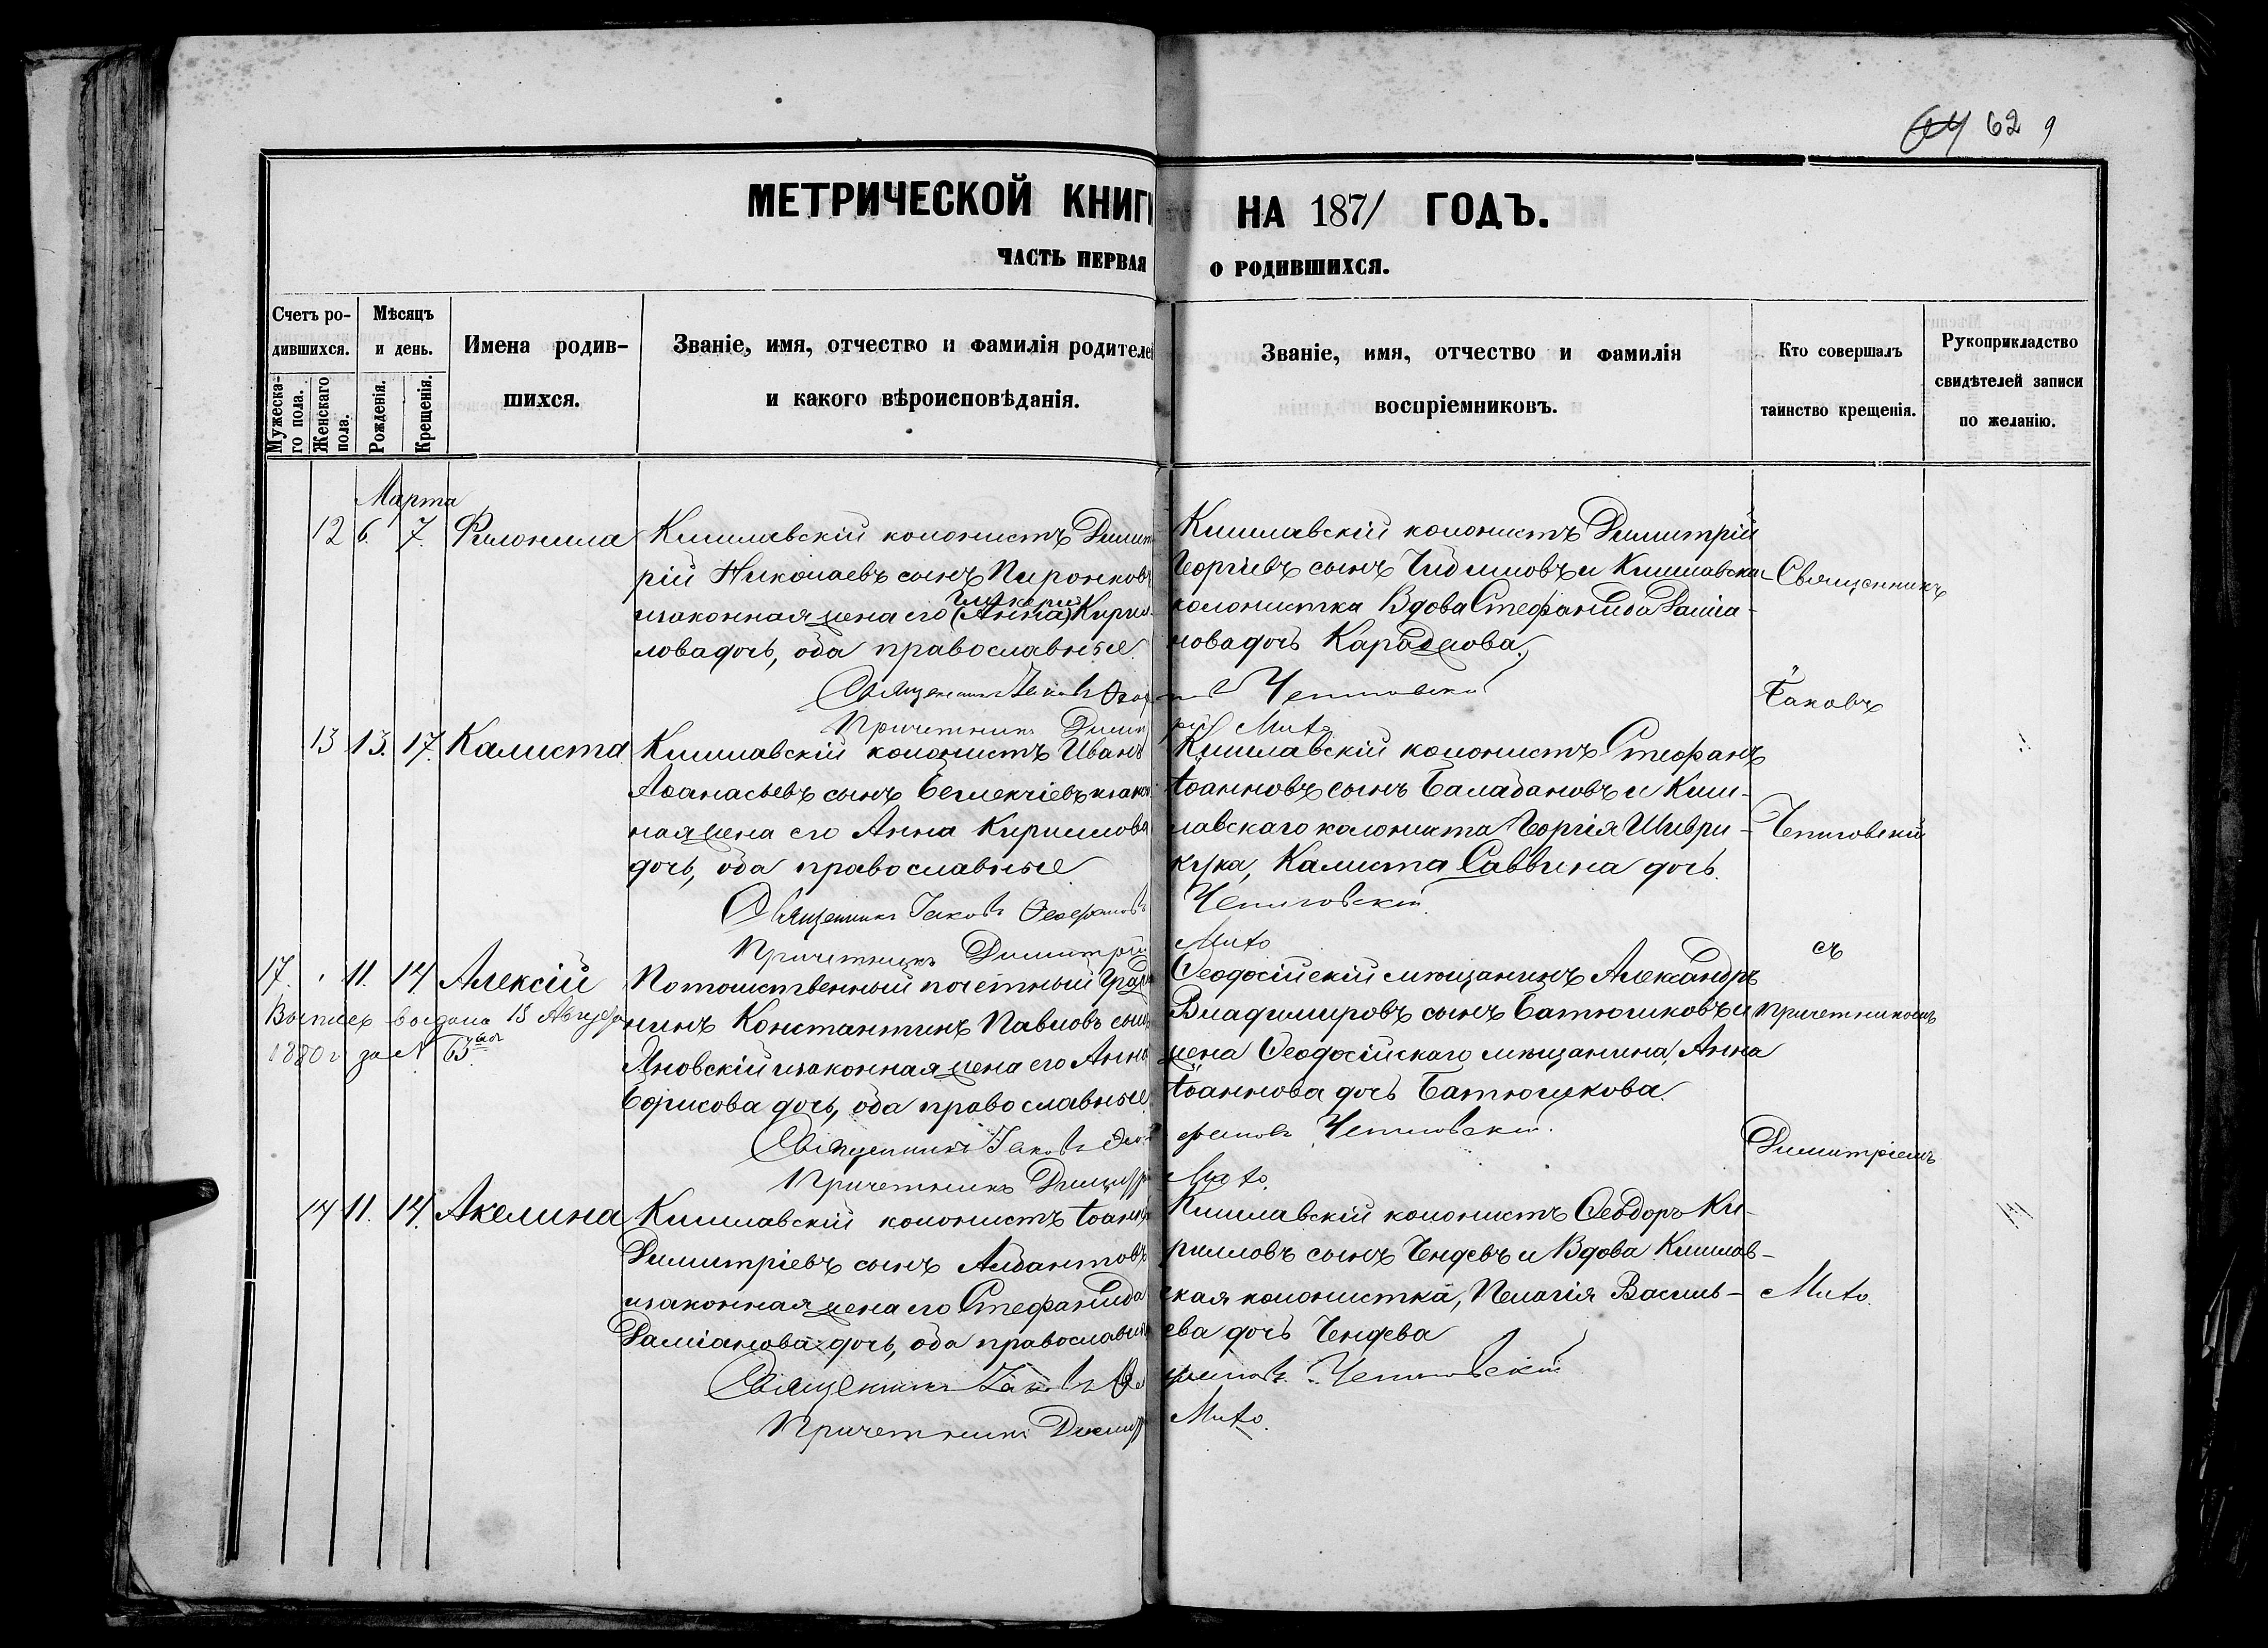 64 62 9
МЕТРИЧЕСКОЙ КНИГИ НА 1871 ГОДЪ.
ЧАСТЬ ПЕРВАЯ О РОДИВШИХСЯ.
Счетъ ро-
дившихся.
Мужеска-
го пола.
Женскаго
пола.
Мѣсяцъ
и день.
Рожденія.
Крещенія.
Имена родив-
шихся.
Званіе, имя, отчество и фамилія родителей
и какого вѣроисповѣданія.
Званіе, имя, отчество и фамилія
воспріемниковъ.
Кто совершалъ
таинство крещенія.
Рукоприкладство
свидѣтелей записи
по желанію.
Марта
12 6. 7. Филонила
Кишлавскій колонистъ Димит
рій Николаевъ сынъ Пиронковъ
Гликерія
и законная жена его (Анна) Кирил-
лова дочь, оба православные.
Священникъ Іаковъ
Причетникъ Димит
Кишлавскій колонистъ Димитрій
Георгіевъ сынъ и Кишлавска-
колонистка Вдова Стефанида Даміа-
нова дочь
Чепиговскій
рій Mито
13 13. 17. Калиста
Кишлавскій колонистъ Иванъ
Аѳанасьевъ сынъ и закон
ная жена его Анна Кириллова
дочь, оба православные
Священникъ Іаковъ Ѳеофановъ
Причетникъ Димитрій
Кишлавскій колонистъ Стефанъ
Іоанновъ сынъ Балабановъ и Киш-
лавскаго колониста Георгія Шиври-
кука, Калиста Саввина дочь.
Чепиговскій
Mито
17. 11. 14 Алексій
Выпись выдана 13 Августа
1880 г за №
Потомственный почетный Граж
нинъ Константинъ Павловъ сынъ
Яновскій и законная жена его Анна
Борисова дочь, оба православные.
Священникъ Іаковъ Ѳео
Причетникъ Димитрій
Ѳеодосійскій мѣщанинъ Александръ
Владимировъ сынъ Батюшковъ и
жена Ѳеодосійскаго мѣщанина, Анна
Іоаннова дочь Батюшкова.
фановъ Чепиговскій.
Mито.
14 11. 14. Акелина
Кишлавскій колонистъ Іоаннъ
Димитріевъ сынъ Албантовъ
и законная жена его Стефанида
Даміанова дочь, оба православные
Священникъ Іаковъ Ѳео
Причетникъ Димитр
Кишлавскій колонистъ Ѳеодоръ Ки-
рилловъ сынъ Гендевъ и Вдова Кишлав-
ская колонистка, Пелагія Василь-
ева дочь Гендева
фановъ Чепиговскій
Mито.
Священникъ
Іаковъ
Чепиговскій
съ
причетникомъ
Димитріемъ
Mито.